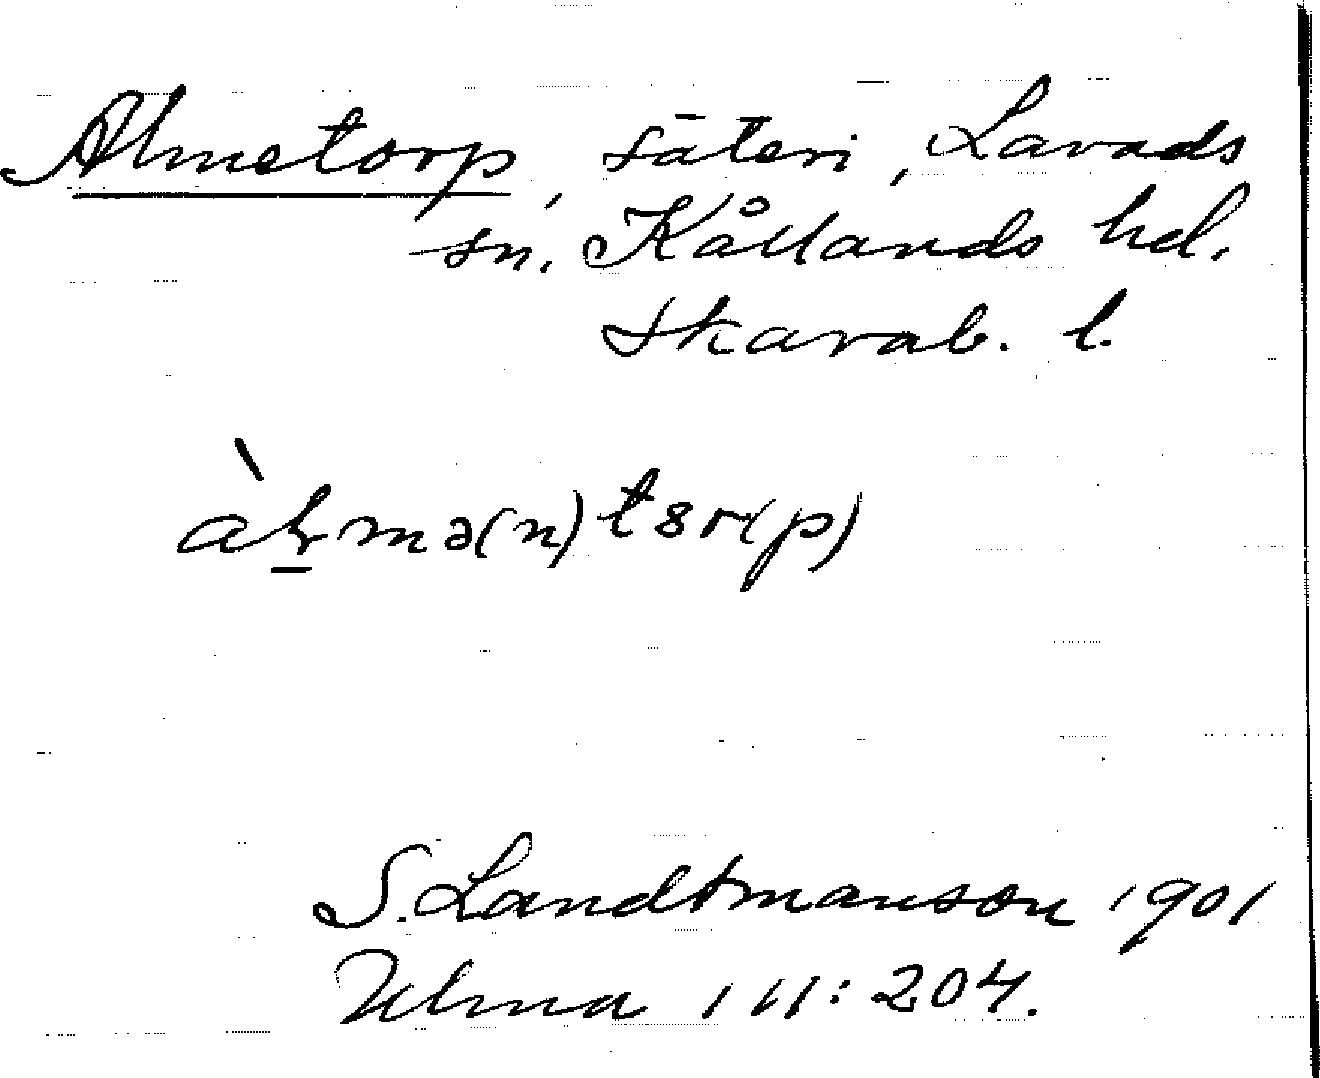 Almetorp, säteri, Lavads
sn. Kållands hd.
Skarab. l.
àḻmə(n)tȣr(p)
S. Landtmanson 1901
Ulma 111:204.